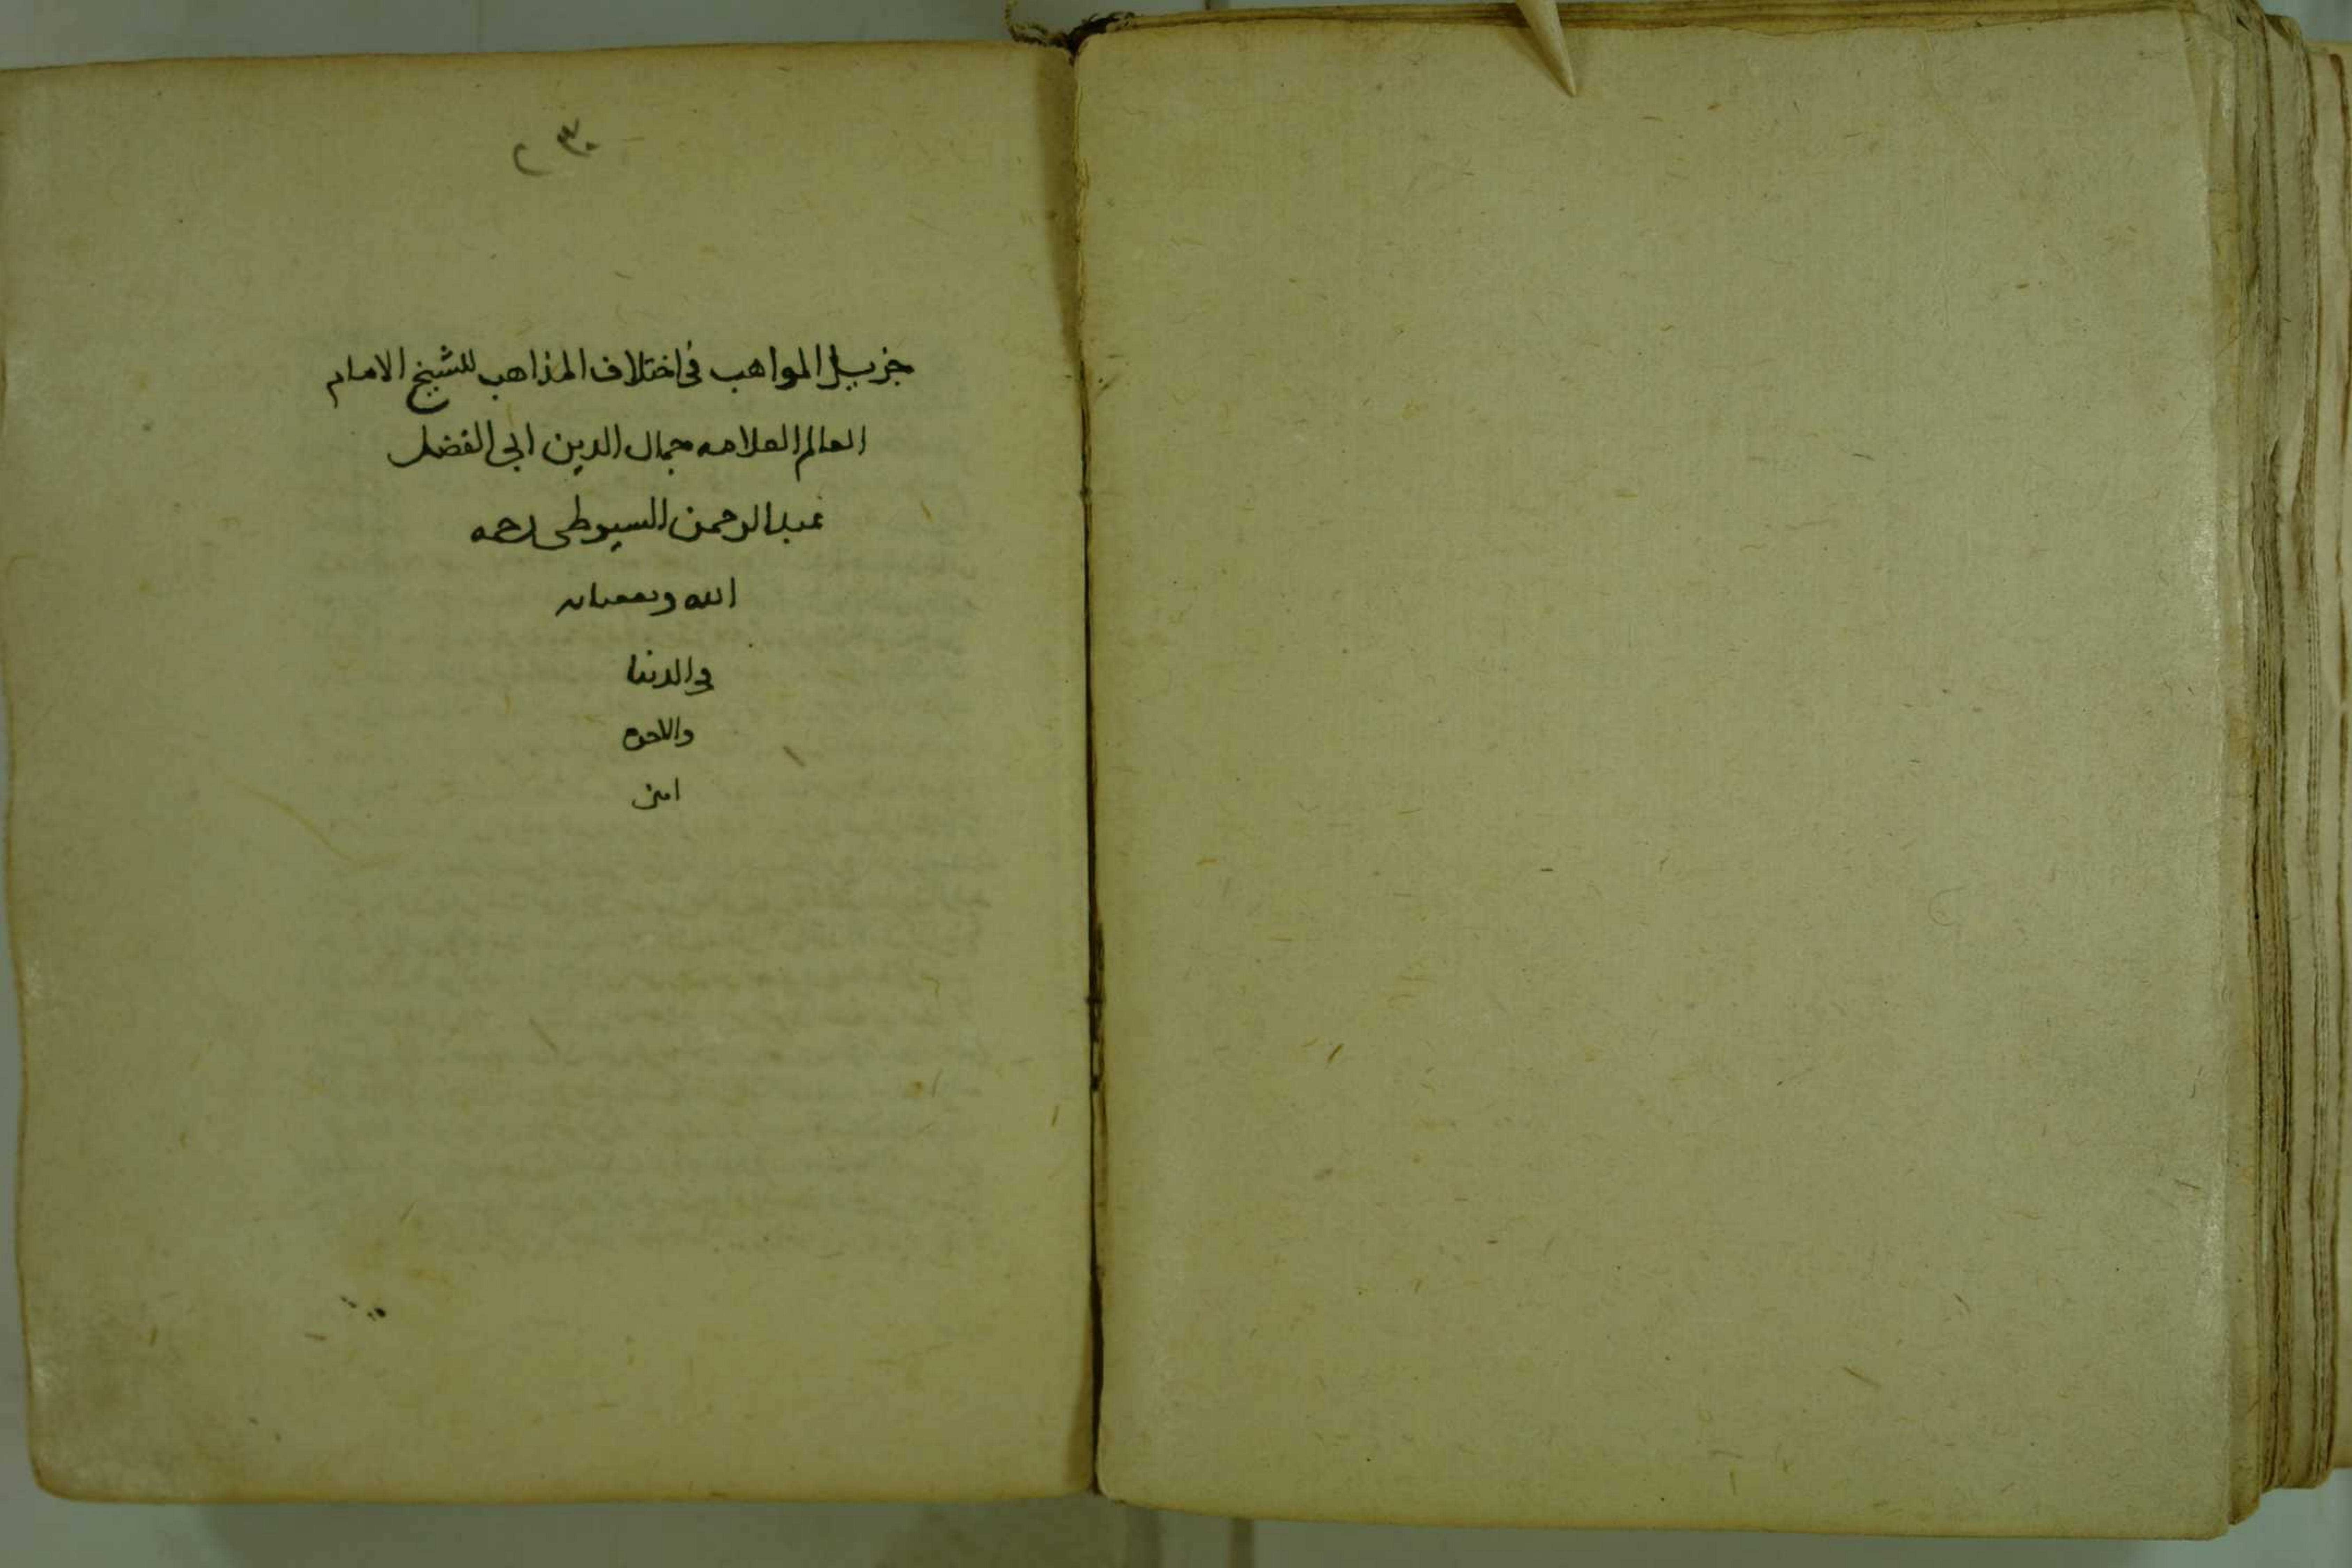 جزيل المواهب في اختلاف المذاهب للشيخ الامام
العالم العلامه جمال الدين ابي الفضل
عبد الرحمن السيوطي رحمه
الله ونفعنا به
في الدنيا
والاخره
امين